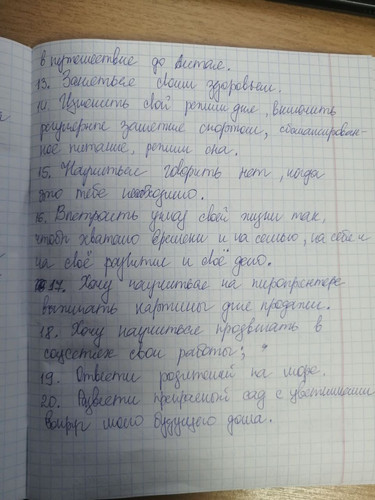 в путешествие до Китая.
13. Заняться своим здоровьем.
14. Изменить свой режим дня, включить
регулярные занятия спортом, сбалансирован-
ное питание, режим сна.
15. Научиться говорить нет, когда
это тебе необходимо.
16. Выстроить уклад своей жизни так,
чтобы хватало времени и на семью, на себя и
на своё развитие и своё дело.
17. Хочу научиться на пиропринтере
выжигать картины для продажи.
18. Хочу научиться продвигать в
соцсетях свои работы;
19. Отвезти родителей на море.
20. Развести прекрасный сад с цветниками
вокруг моего будущего дома.